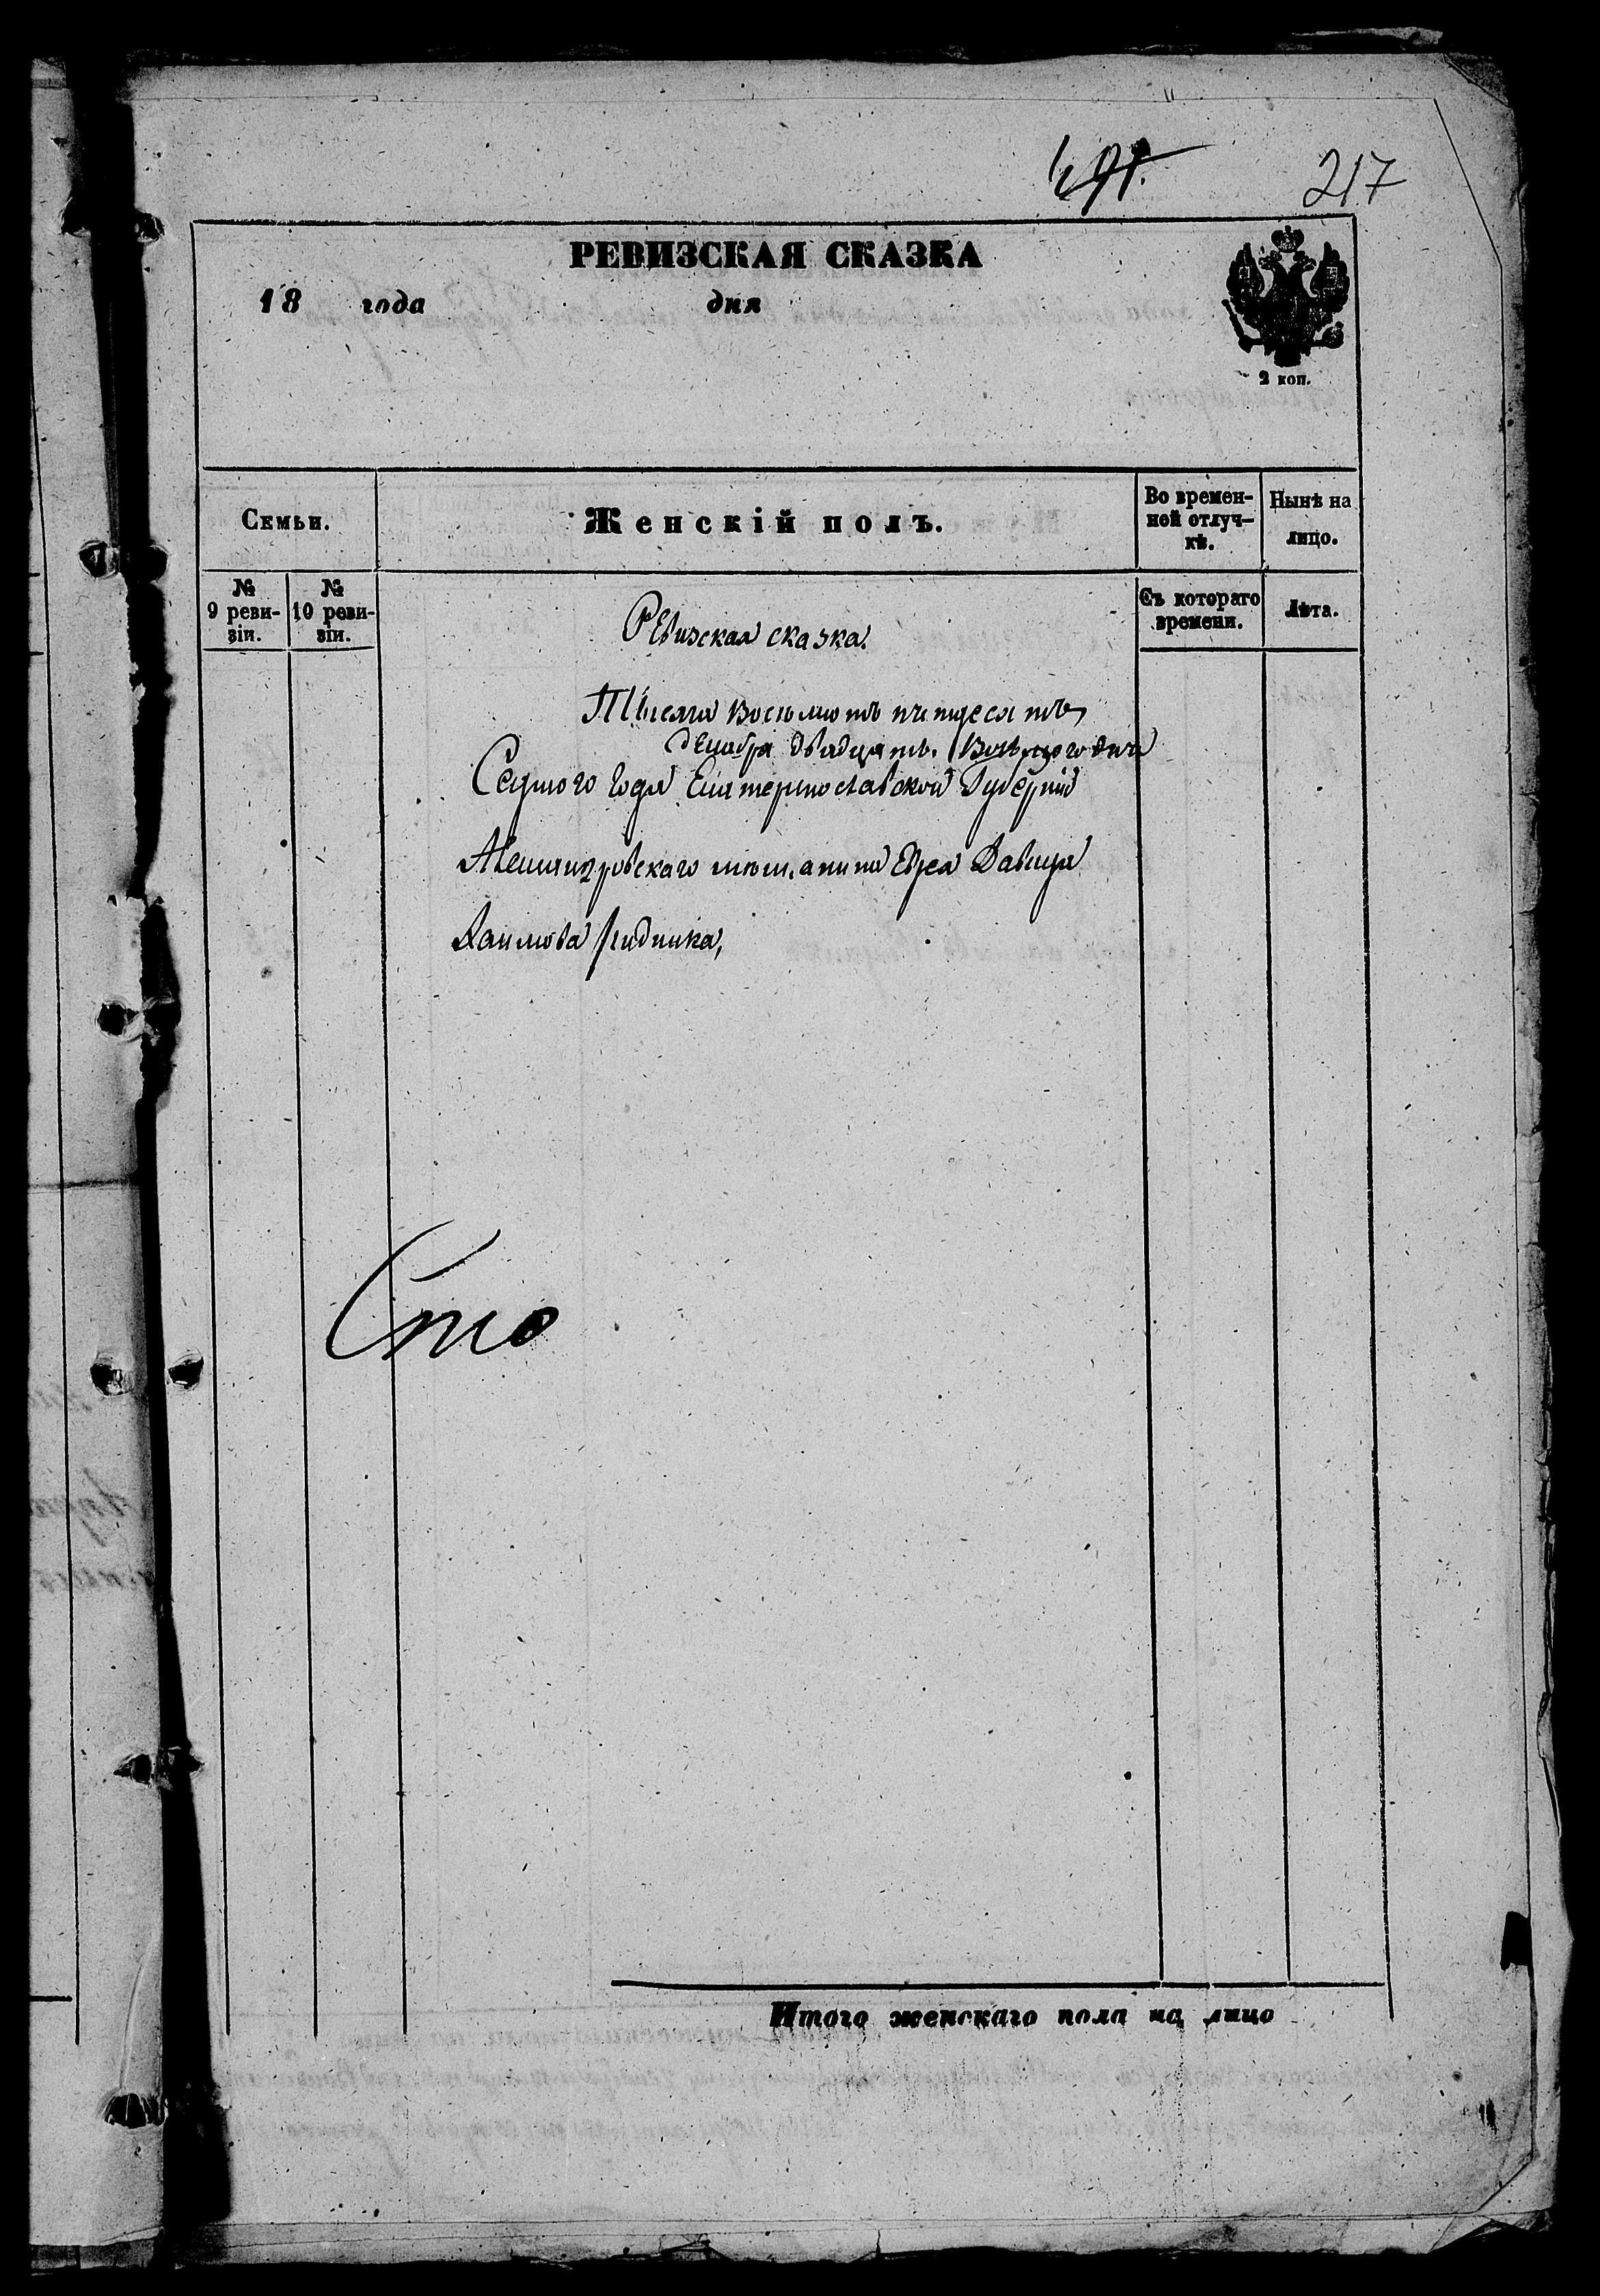 491.
217
РЕВИЗСКАЯ СКАЗКА
18 года дня
2 коп.
Семьи.
Женскій полъ.
Во времен-
ной отлуч-
кѣ.
Нынѣ на
лицо.
№
9 реви-
зіи.
№
10 реви-
зіи.
Съ котораго
времени.
Лѣта.
Ревизская сказка.
Тысяча Восемьсотъ пятдесятъ
декабря двадцать Восьмого дня
Седмого Года Екатеринославской Губерніи
Александровскаго мѣщанина Еврея Давида
Хаимова
Сто
Итого женскаго пола на лицо